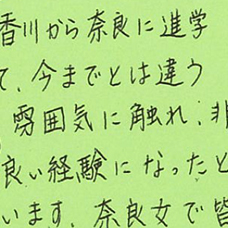 香川から奈良に進学
て、今までとは違う
雰囲気に触れ、非
良い経験になったと
います。奈良女で皆